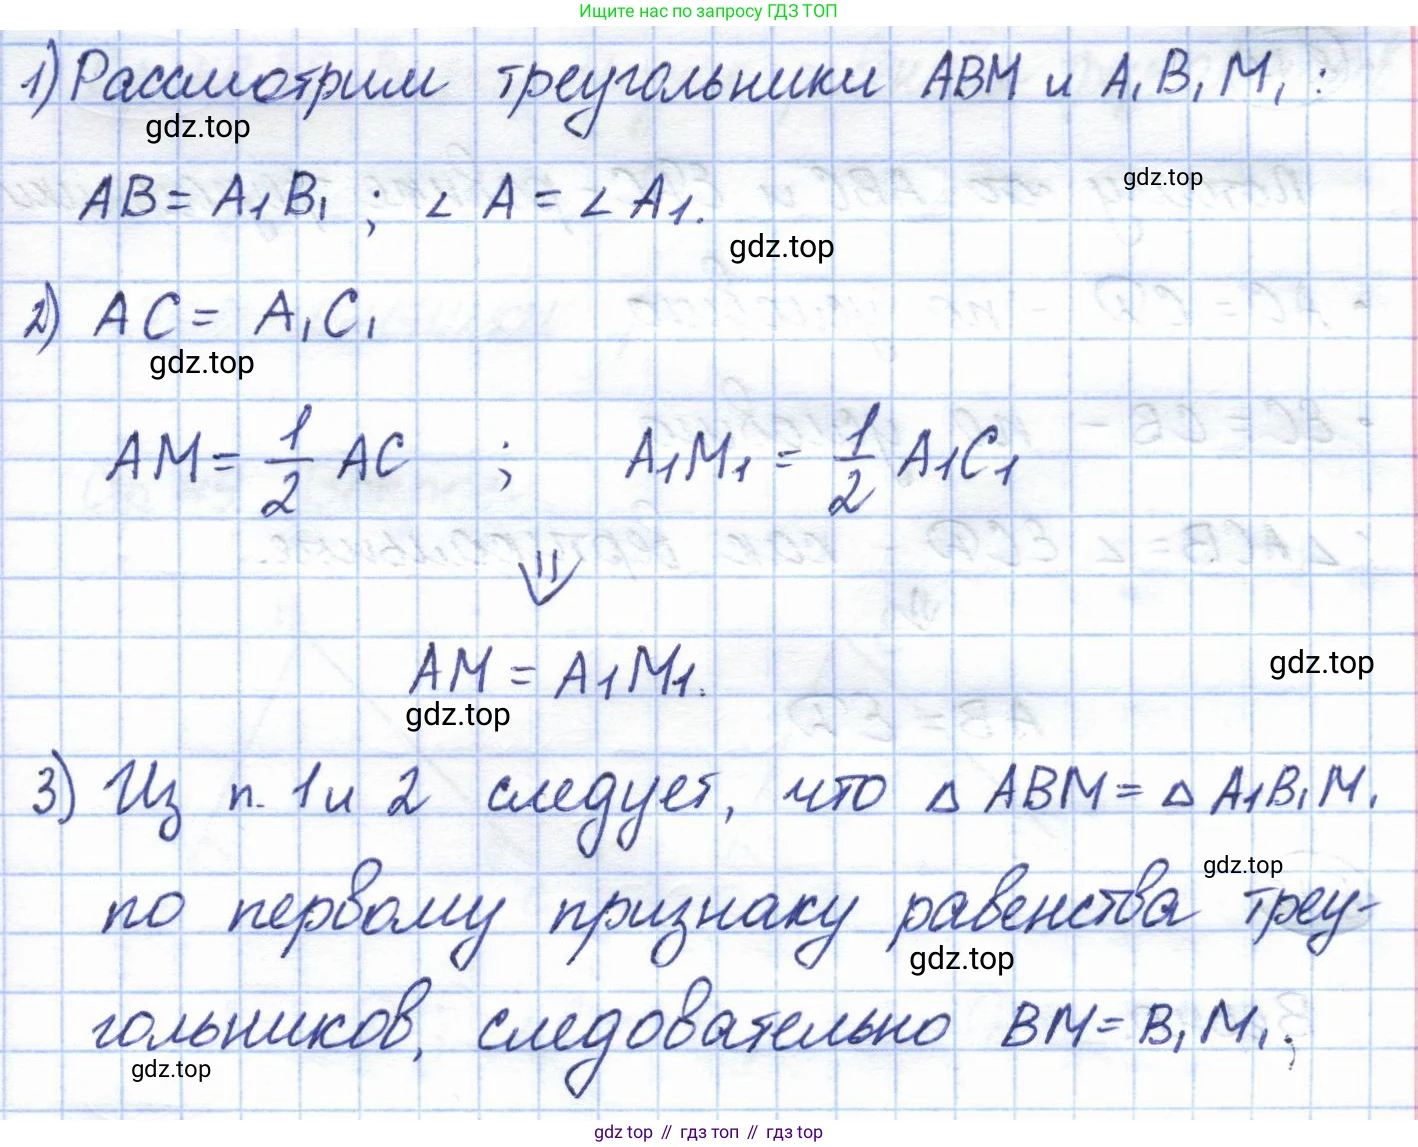 Ищите нас по запросу ГДЗ ТОП
1) Рассмотрим треугольники ABM и A₁B₁M₁:
gdz.top
gdz.top
AB = A₁B₁ ; ∠ A = ∠ A₁.
gdz.top
2) AC = A₁C₁
gdz.top
AM = 1/2 AC ; A₁M₁ = 1/2 A₁C₁
⇓
AM = A₁M₁.
gdz.top
gdz.top
3) Из п. 1 и 2 следует, что △ ABM = △ A₁B₁M₁
gdz.top
по первому признаку равенства треу-
gdz.top
гольников, следовательно BM = B₁M₁.
gdz.top
gdz top // гдз топ // gdz top